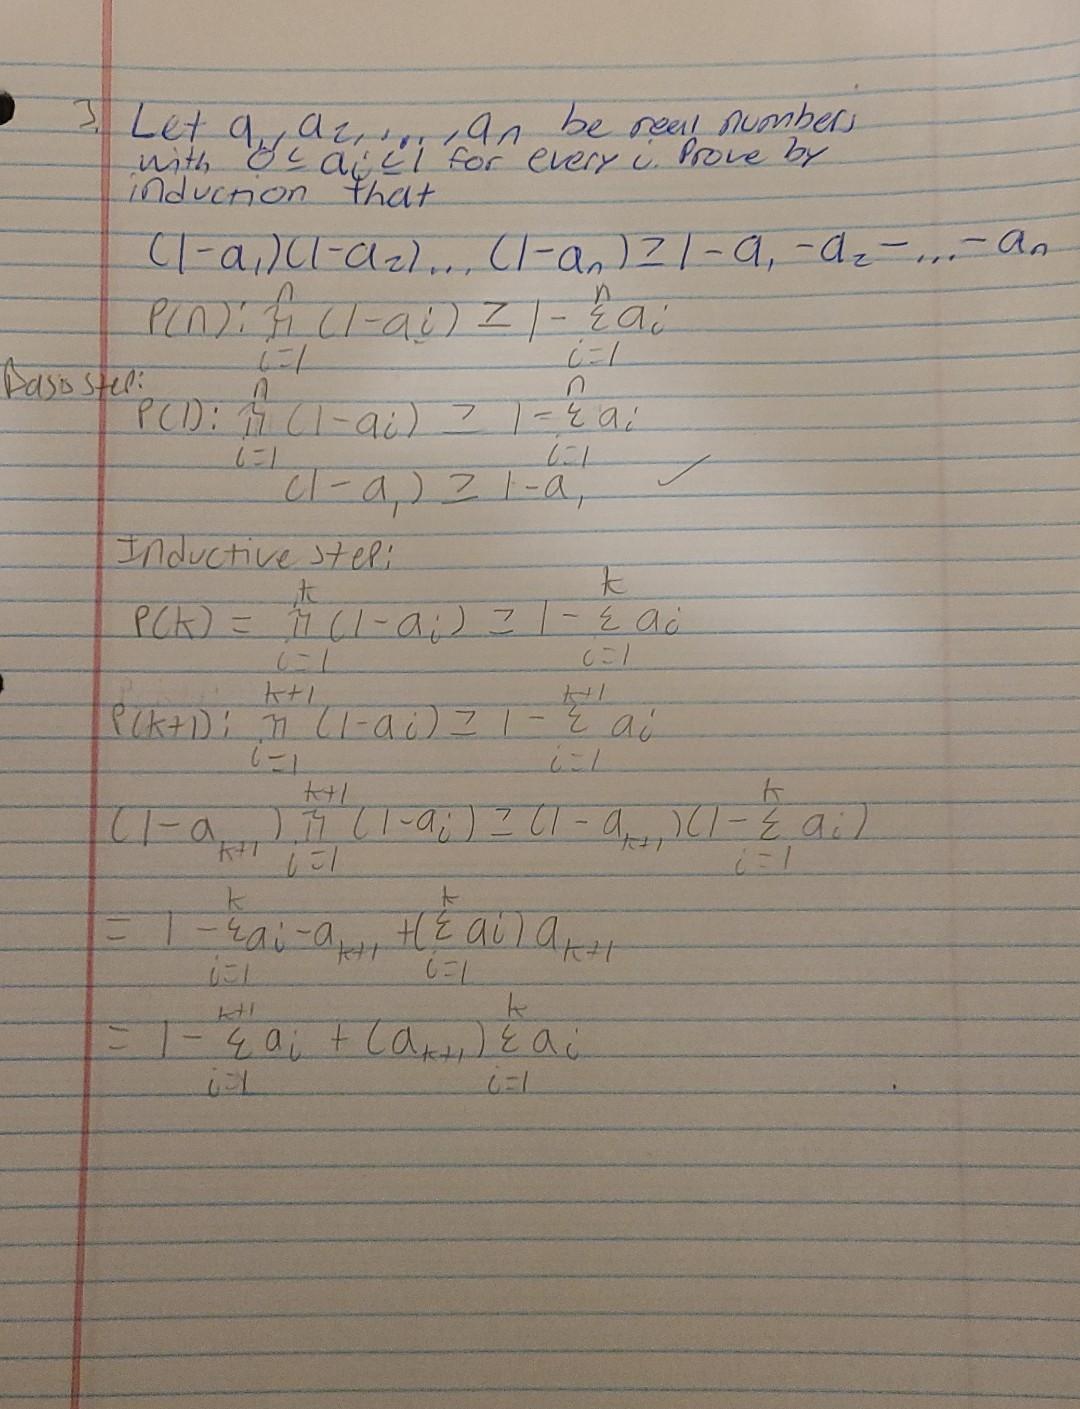 3. Let a₁, a₂, ..., aₙ be real numbers
with 0 ≤ aᵢ ≤ 1 for every i. Prove by
induction that
(1-a₁)(1-a₂)...(1-aₙ) ≥ 1-a₁-a₂-...-aₙ
P(n): ∏_{i=1}^{n} (1-aᵢ) ≥ 1 - Σ_{i=1}^{n} aᵢ
Basis step:
P(1): ∏_{i=1}^{n} (1-aᵢ) ≥ 1 - Σ_{i=1}^{n} aᵢ
(1-a₁) ≥ 1-a₁ ✓
Inductive step:
P(k) = ∏_{i=1}^{k} (1-aᵢ) ≥ 1 - Σ_{i=1}^{k} aᵢ
P(k+1): ∏_{i=1}^{k+1} (1-aᵢ) ≥ 1 - Σ_{i=1}^{k+1} aᵢ
(1-a_{k+1}) ∏_{i=1}^{k+1} (1-aᵢ) ≥ (1-a_{k+1})(1 - Σ_{i=1}^{k} aᵢ)
= 1 - Σ_{i=1}^{k} aᵢ - a_{k+1} + (Σ_{i=1}^{k} aᵢ) a_{k+1}
= 1 - Σ_{i=1}^{k+1} aᵢ + (a_{k+1}) Σ_{i=1}^{k} aᵢ